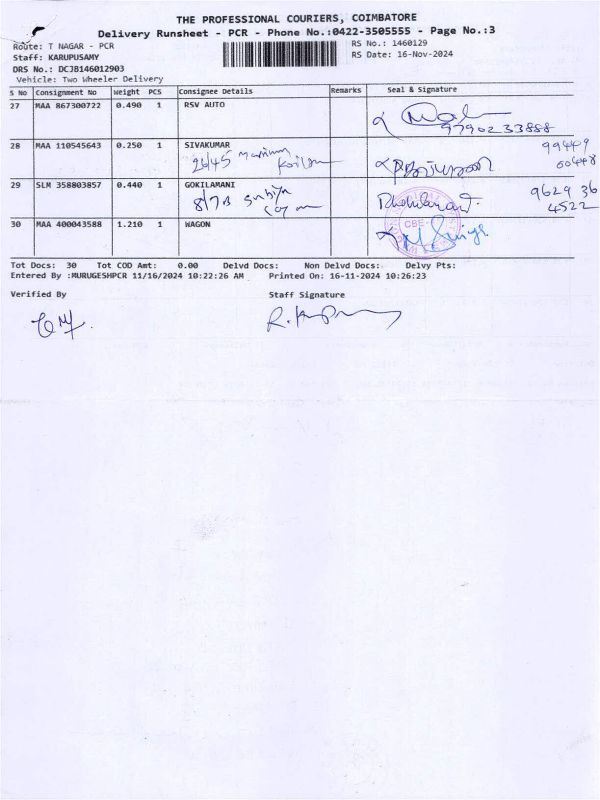 THE PROFESSIONAL COURIERS, COIMBATORE
Delivery Runsheet - PCR - Phone No.:0422-3505555 - Page No.:3
Route: T NAGAR - PCR
Staff: KARUPUSAMY
DRS No.: DCJB146012903
Vehicle: Two Wheeler Delivery
RS No.: 1460129
RS Date: 16-Nov-2024
S No Consignment No Weight PCS Consignee Details Remarks Seal & Signature
27 MAA 867300722 0.490 1 RSV AUTO
9790233888
28 MAA 110545643 0.250 1 SIVAKUMAR
26/45
99449
60448
29 SLM 358803857 0.440 1 GOKILAMANI
8/7B
9629 36
4522
30 MAA 400043588 1.210 1 WAGON
CBE
Tot Docs: 30 Tot COD Amt: 0.00 Delvd Docs: Non Delvd Docs: Delvy Pts:
Entered By :MURUGESHPCR 11/16/2024 10:22:26 AM Printed On: 16-11-2024 10:26:23
Verified By Staff Signature